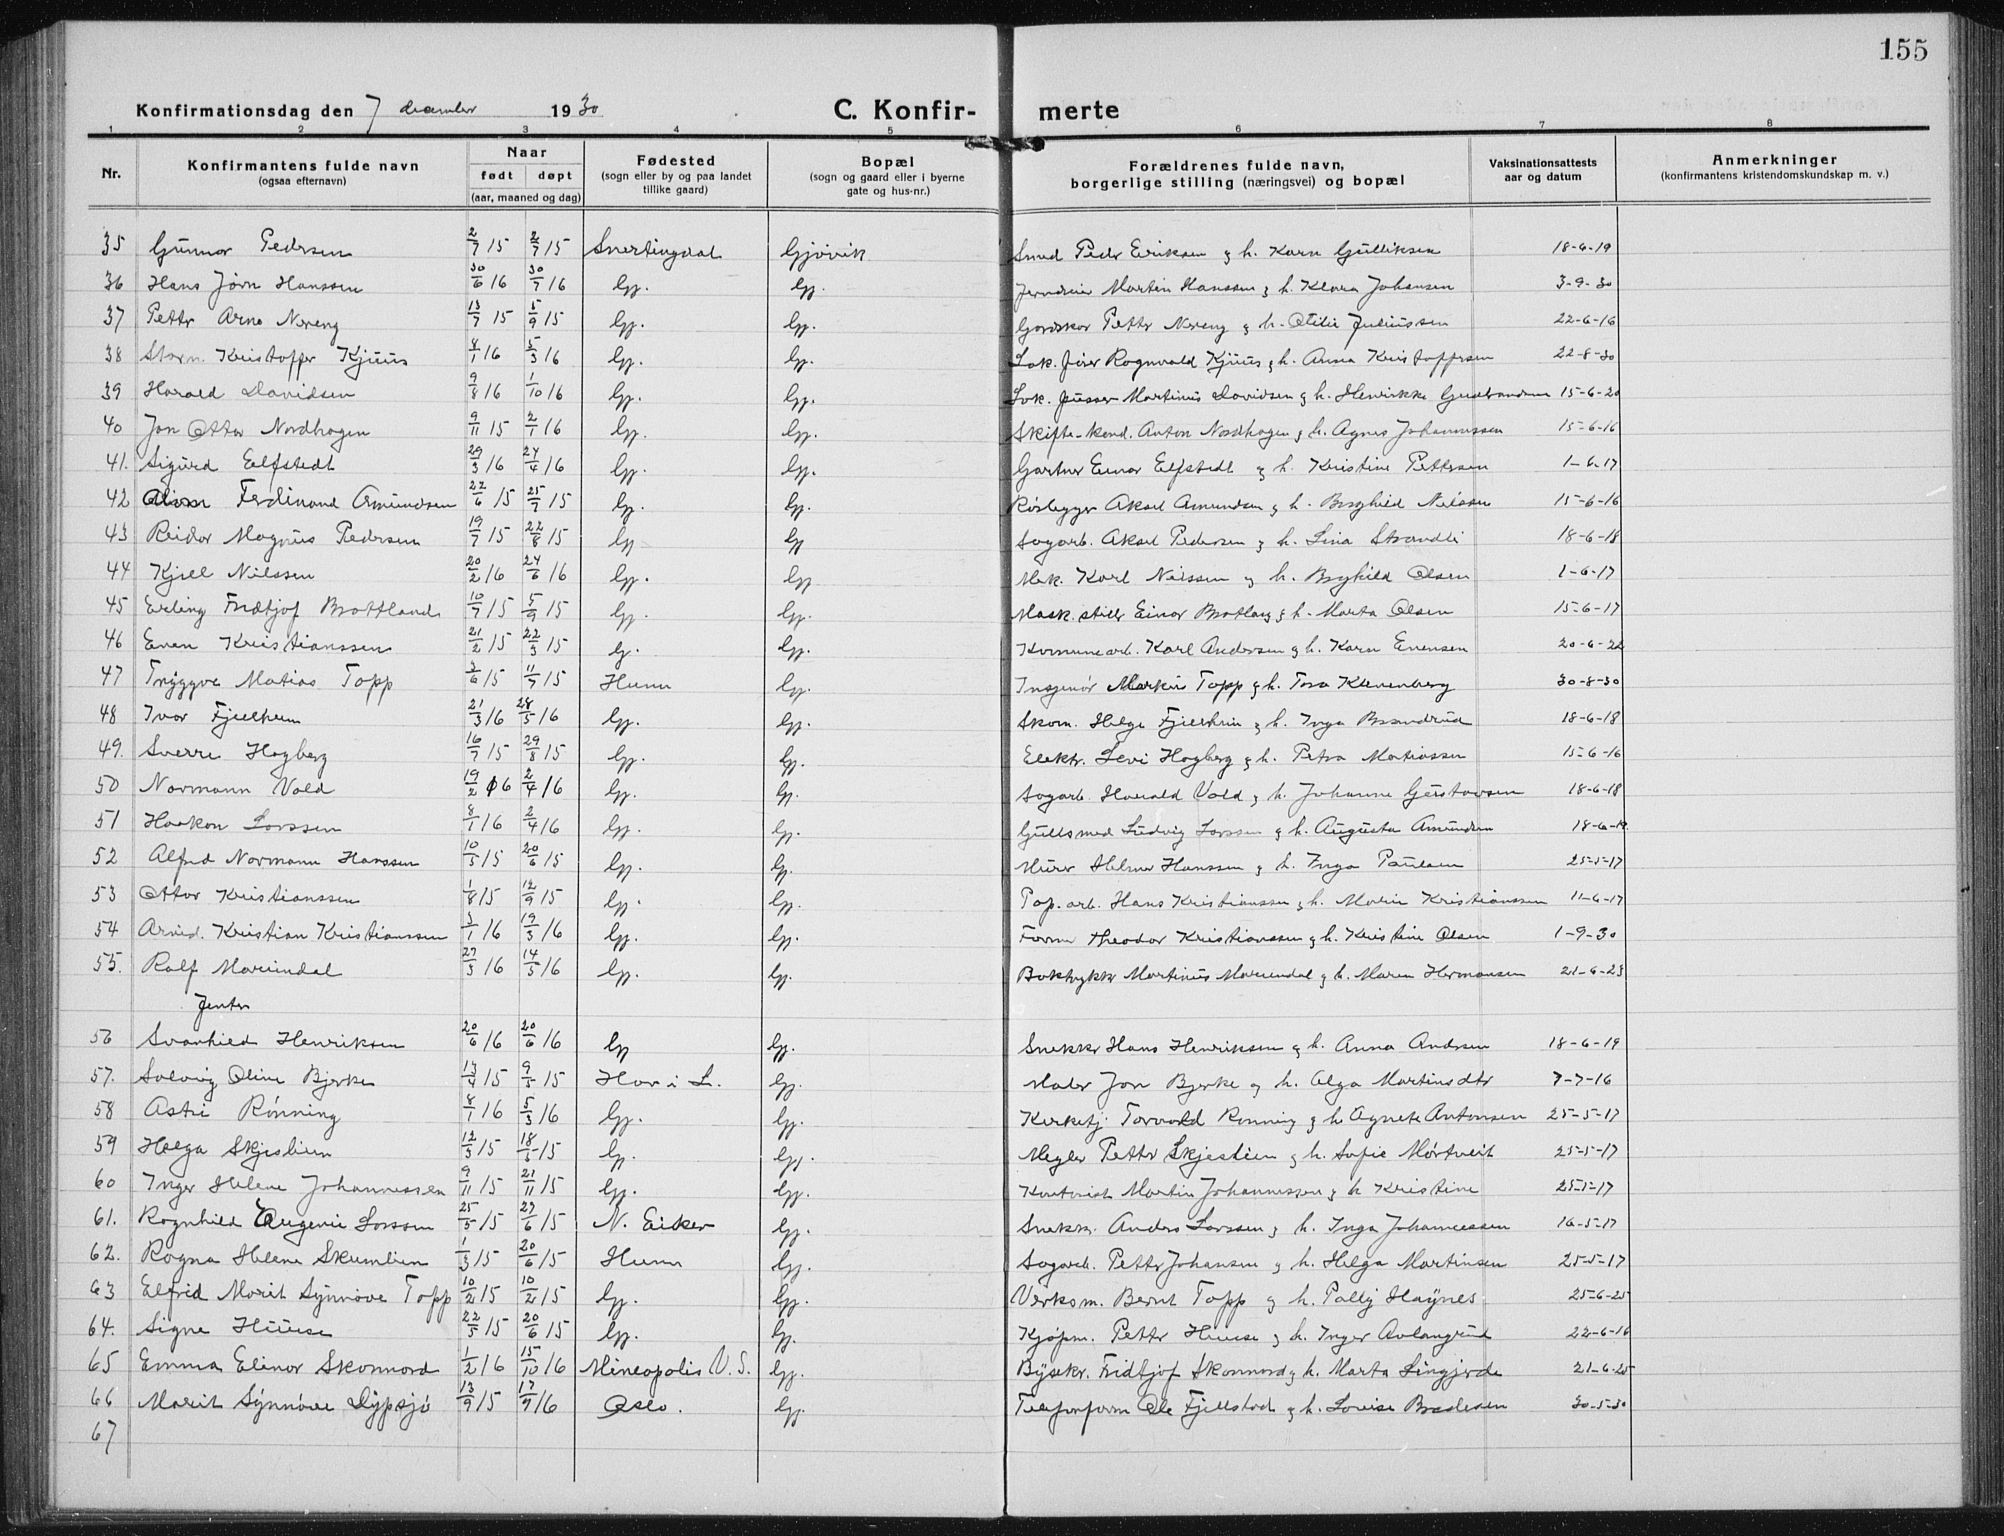 155
Konfirmationsdag den 7 december 1930 C. Konfir- merte
1 2 3 4 5 6 7 8
Nr. Konfirmantens fulde navn (ogsaa efternavn) Naar født døpt (aar, maaned og dag) Fødested (sogn eller by og paa landet tillike gaard) Bopæl (sogn og gaard eller i byerne gate og hus-nr.) Forældrenes fulde navn, borgerlige stilling (næringsvei) og bopæl Vaksinationsattests aar og datum Anmerkninger (konfirmantens kristendomskundskap m. v.)
35 Gunnar Pedersen 2/7 15 2/7 15 Snertingdal Gjøvik Smed Peder Eriksen & h. Karen Gulliksen 18-6-19
36 Hans Jørn Hanssen 30/6 16 30/7 16 Gj. Gj. Martin Hanssen & h. Klara Johansen 3-9-30
37 Petter Arne Nereng 13/7 15 5/9 15 Gj. Gj. Petter Nereng & h. Otilie Juliussen 22-6-16
38 Kristoffer Kjuus 8/1 16 5/3 16 Gj. Gj. Lok. fører Rognvald Kjuus & h. Anna Kristoffersen 22-8-30
39 Harald Davidsen 9/8 16 1/10 16 Gj. Gj. Lok. pusser Martinus Davidsen & h. Henrikke Gudbrandsen 15-6-20
40 Jon Ottar Nordhagen 9/11 15 2/1 16 Gj. Gj. Skifte-kond. Anton Nordhagen & h. Agnes Johannessen 15-6-16
41. Sigurd Elfstedt 29/3 16 24/4 16 Gj. Gj. Gartner Einar Elfstedt & h. Kristine Pettersen 1-6-17
42 Ferdinand Amundsen 22/6 15 25/7 15 Gj. Gj. Rørlegger Aksel Amundsen & h. Borghild Nielsen 15-6-16
43 Reidar Magnus Pedersen 19/7 15 22/8 15 Gj Gj Sagarb. Aksel Pedersen & h. Lina Strandli 18-6-18
44 Kjell Nilssen 20/2 16 24/6 16 Gj. Gj Mek. Karl Nilssen & h. Borghild Olsen 1-6-17
45 Erling Fridtjof Brottland 10/7 15 5/9 15 Gj. Gj. Mask. stiller Einar Brotland & h. Marta Olsen 15-6-17
46 Even Kristianssen 21/2 15 22/3 15 Gj. Gj. Kommunearb. Karl Andersen & h. Karen Evensen 20-6-22
47 Tryggve Matias Topp 2/6 15 11/7 15 Hunn Gj. Ingeniør Markus Topp & h. Tora Klevenberg 30-8-30
48 Ivar Fjellheim 21/3 16 28/5 16 Gj. Gj. Skom. Helge Fjellheim & h. Inga Brandrud 18-6-18
49. Sverre Hagberg 16/7 15 29/8 15 Gj. Gj. Elektr. Levi Hagberg & h. Petra Matiassen 15-6-16
50 Normann Vold 19/2 16 2/4 16 Gj. Gj. Sagarb. Harald Vold & h. Johanne Gustavsen 18-6-18
51 Haakon Larssen 8/1 16 2/4 16 Gj. Gj. Gullsmed Ludvig Larssen & h. Augusta Amundsen 18-6-19
52 Alfred Normann Hanssen 10/5 15 20/6 15 Gj. Gj. Murer Helmer Hanssen & h. Inga Paulsen 25-5-17
53 Ottar Kristianssen 1/8 15 12/9 15 Gj. Gj. Pap. arb. Hans Kristianssen & h. Marie Kristianssen 11-6-17
54 Arvid Kristian Kristianssen 3/1 16 19/3 16 Gj. Gj. Former Theodor Kristianssen & h. Kristine Olsen 1-9-30
55. Ralf Mariendal 27/3 16 14/5 16 Gj. Gj. Boktrykker Martinus Mariendal & h. Maren Hermansen 21-6-23
Jenter
56 Svanhild Henriksen 20/6 16 20/6 16 Gj Gj. Snekker Hans Henriksen & h. Anna Andersen 18-6-19
57. Solveig Oline Bjerke 13/4 15 9/5 15 Hov i L. Gj. Maler Jon Bjerke & h. Olga Martinsdtr 7-7-16
58 Astri Rønning 8/1 16 5/3 16 Gj. Gj. Kirketj. Torvald Rønning & h. Agnete Antonsen 25-5-17
59 Helga Skjeslien 12/3 15 18/5 15 Gj. Gj. Megler Petter Skjeslien & h. Sofie Mørtveit 25-5-17
60 Inger Helene Johannessen 9/11 15 21/11 15 Gj. Gj. Kontorist Martin Johannessen & h Kristine 25-5-17
61. Rognhild Eugenie Larssen 25/5 15 27/6 15 N. Eiker Gj. Snekker Anders Larssen & h. Inga Johannessen 16-5-17
62. Ragna Helene Skumlien 1/3 15 20/6 15 Hunn Gj. Sagarb. Petter Johansen & h. Helga Martinsen 25-5-17
63 Elfrid Marit Synnøve Topp 10/2 15 10/2 15 Gj. Gj. Verksm. Bernt Topp & h. Polly Haynes 25-6-25
64. Signe Huuse 22/5 15 20/6 15 Gj. Gj. Kjøpm. Petter Huuse & h. Inger Avlangrud 22-6-16
65 Emma Elinor Skonnord 1/2 16 15/10 16 Mineopolis U.S. Gj. Bysekr. Fridtjof Skonnord & h. Marta Lingjerde 21-6-25
66 Marit Synnøve Dypsjø 13/9 15 17/9 16 Oslo. Gj. Telefonform Ole Fjellstad & h. Lovise Bredesen 30-5-30
67